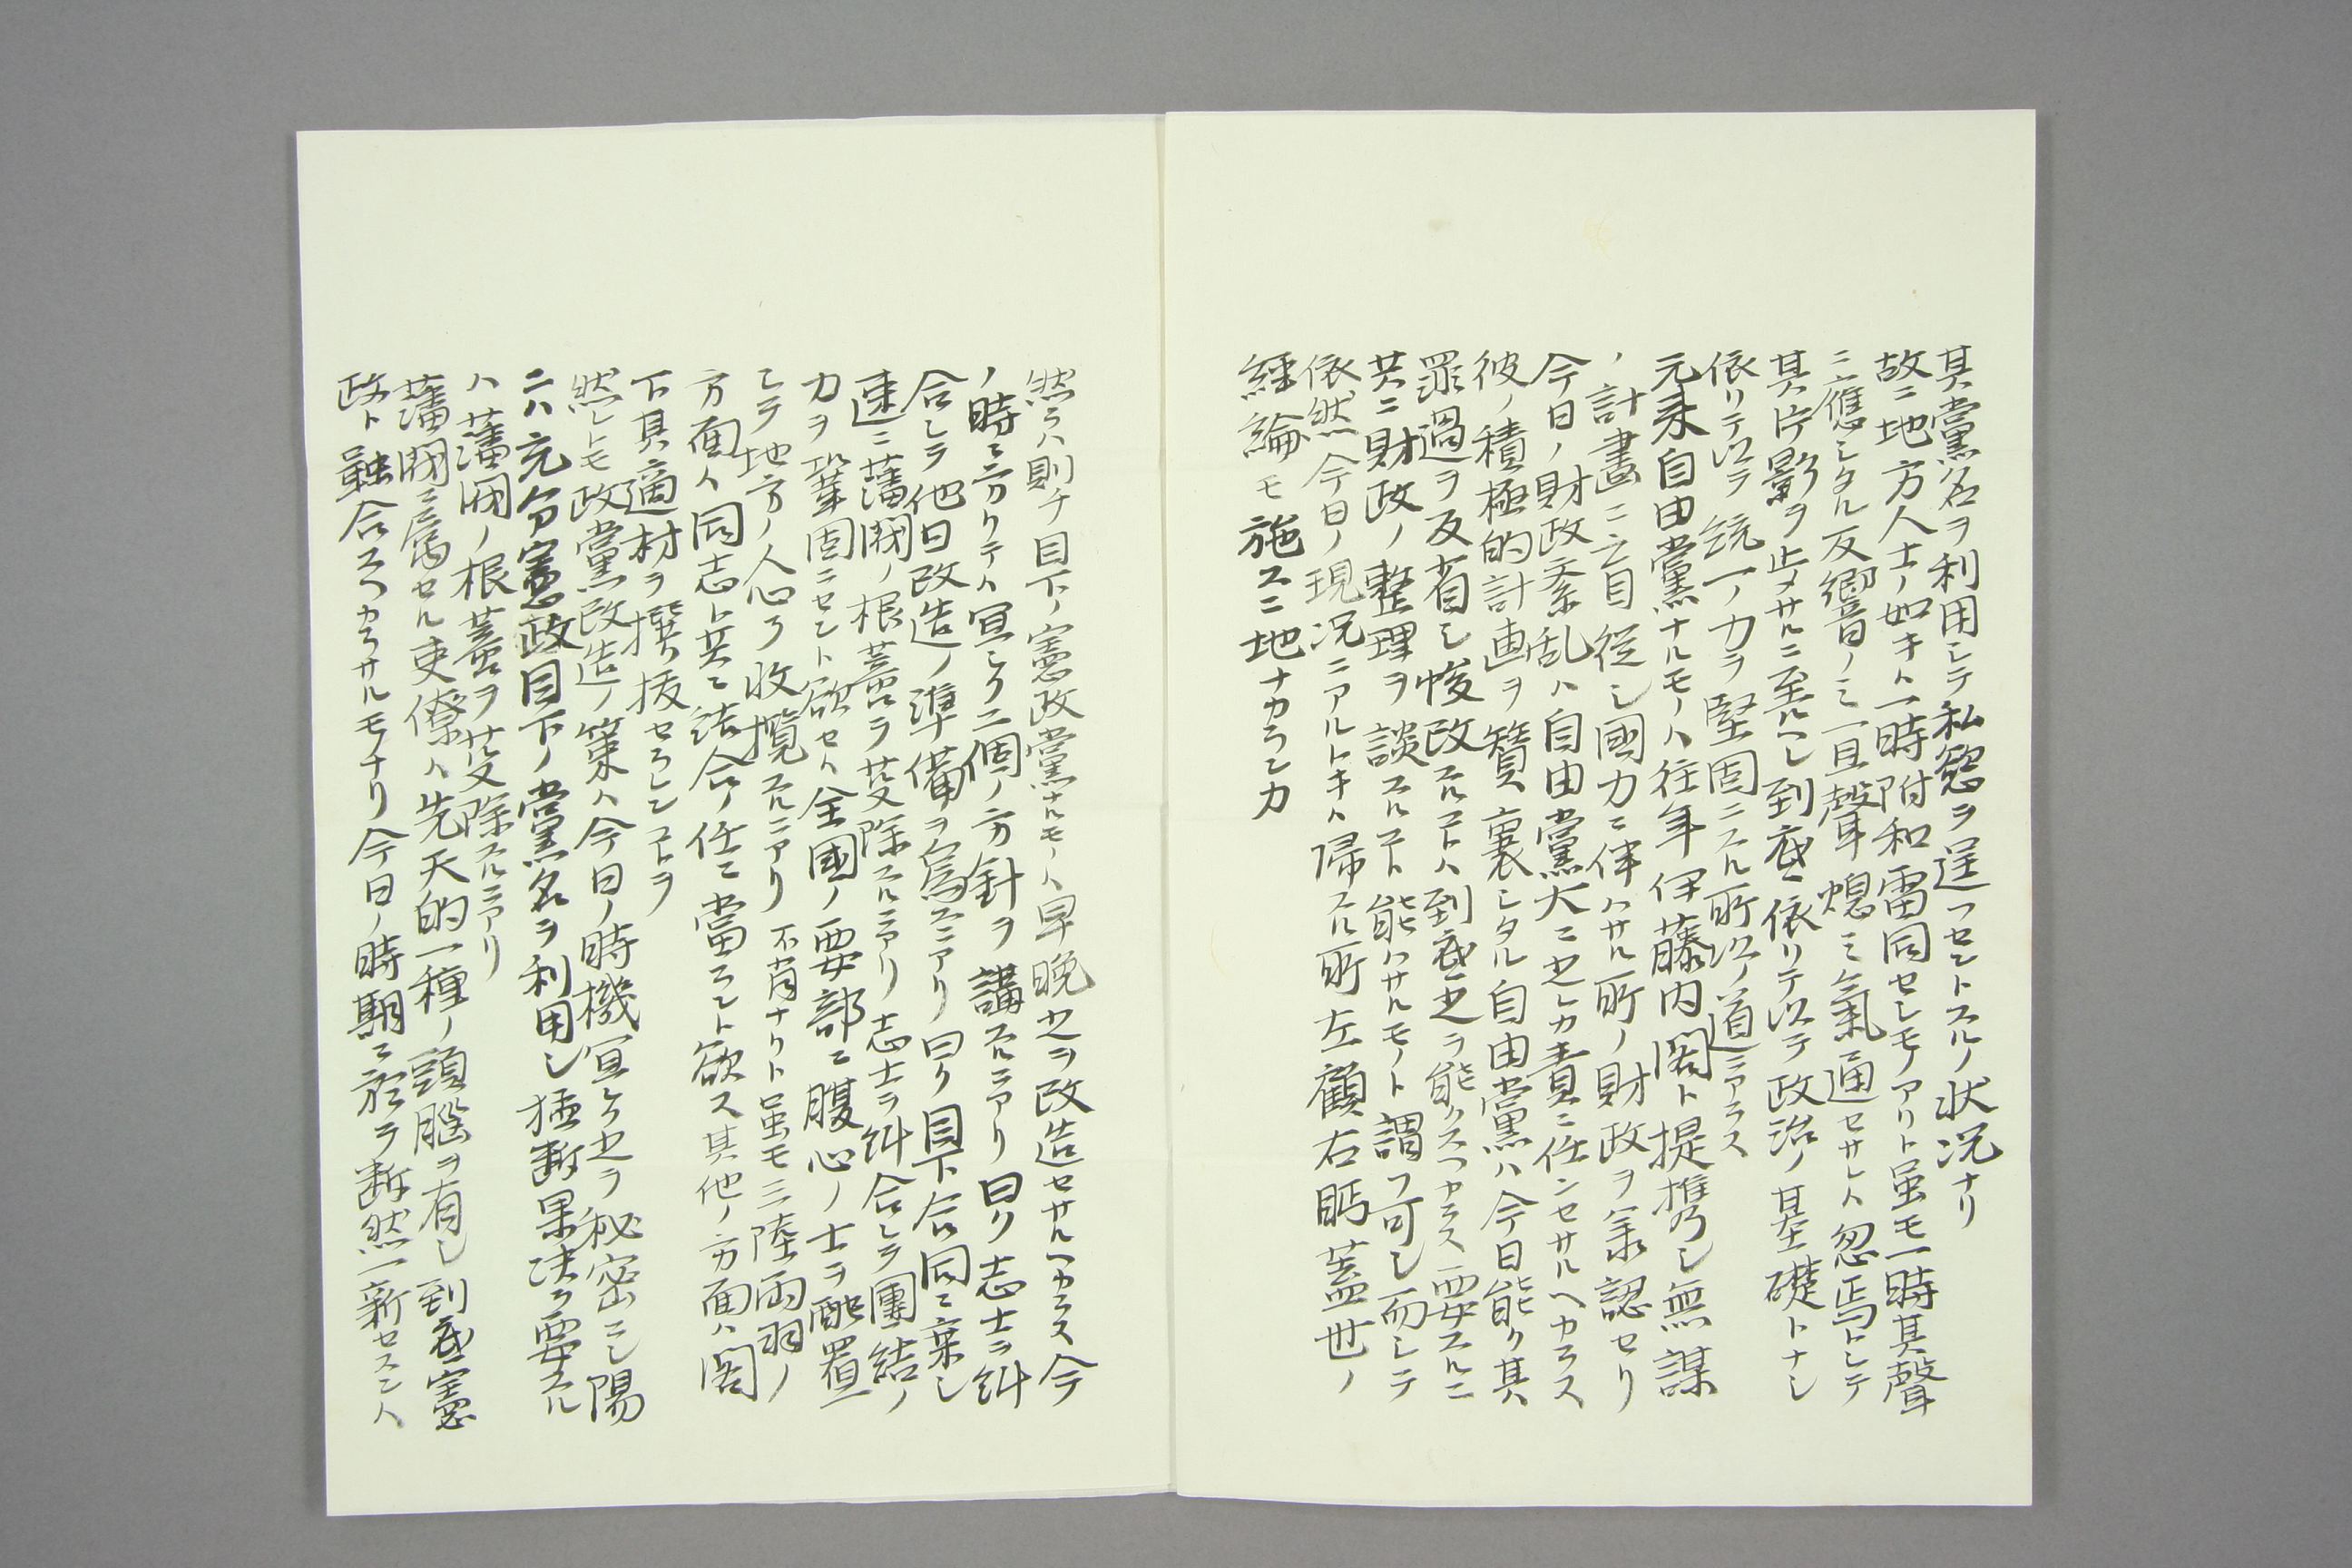 其黨名ヲ利用シテ私慾ヲ逞フセントスルノ状况ナリ
故ニ地方人士ノ如キハ一時附和雷同セシモノアリト虽モ一時其聲
ニ應シタル反響ノミ一旦聲熄ミ氣通セサレハ忽焉トシテ
其片影ヲ止メサルニ至ルヘシ到底依リテ以テ政治ノ基礎トナシ
依リテ以テ統一ノ力ヲ堅固ニスル所以ノ道ニアラス
元来自由黨ナルモノハ往年伊藤内閣ト提携シ無謀
ノ計畫ニ盲従シ國力ニ伴ハサル所ノ財政ヲ承認セリ
今日ノ財政紊乱ハ自由黨大ニ之レカ責ニ任ンセサルヘカラス
彼ノ積極的計画ヲ賛襄シタル自由黨ハ今日能ク其
罪過ヲ反省シ悛改スルコトハ到底之ヲ能クスヘカラス要スルニ
共ニ財政ノ整理ヲ談スルコト能ハサルモノト謂フ可シ而シテ
依然今日ノ現况ニアルトキハ帰スル所左顧右眄蓋世ノ
經綸モ施スニ地ナカランカ
然ラハ則チ目下ノ憲政黨ナルモノハ早晩之ヲ改造セサルヘカラス今
ノ時ニ方リテハ宜シク二個ノ方針ヲ講スルニアリ曰ク志士ヲ糾
合シテ他日改造ノ準備ヲ為スニアリ曰ク目下合同ニ乗シ
速ニ藩閥ノ根蔕ヲ芟除スルニアリ志士ヲ糾合シテ團結ノ
力ヲ鞏固ニセント欲セハ全國ノ要部ニ腹心ノ士ヲ配置
シテ地方ノ人心ヲ收攬スルニアリ不肖ナリト虽モ三陸両羽ノ
方面ハ同志ト共ニ結合ノ任ニ當ラント欲ス其他ノ方面ハ閣
下其適材ヲ撰抜セラレンコトヲ
然レトモ政黨改造ノ策ハ今日ノ時機宜シク之ヲ秘密ニシ陽
ニハ充分憲政目下ノ黨名ヲ利用シ極断果决ヲ要スル
ハ藩閥ノ根蔕ヲ芟除スルニアリ
藩閥ニ属セル吏僚ハ先天的一種ノ頭腦ヲ有シ到底憲
政ト融合スヘカラサルモノナリ今日ノ時期ニ於テ断然一新セスンハ